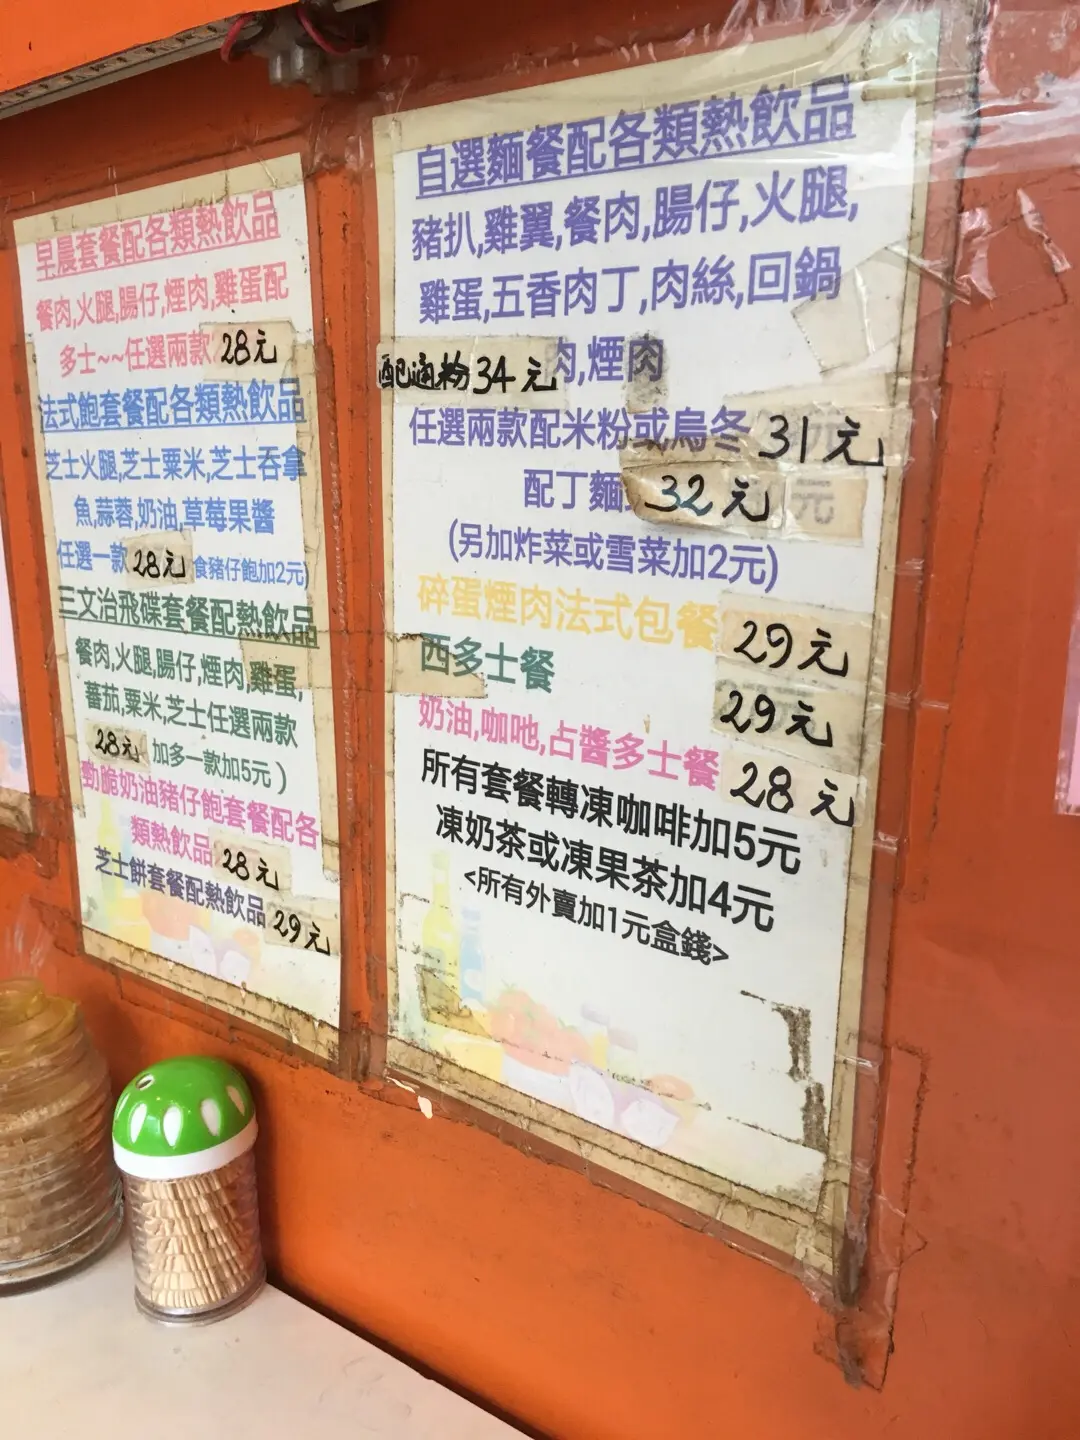 早晨套餐配各類熱飲品
餐肉,火腿,腸仔,煙肉,雞蛋配
多士~~任選兩款 28元
法式飽套餐配各類熱飲品
芝士火腿,芝士粟米,芝士吞拿
魚,蒜蓉,奶油,草莓果醬
任選一款 28元 食豬仔飽加2元)
三文治飛碟套餐配熱飲品
餐肉,火腿,腸仔,煙肉,雞蛋,
蕃茄,粟米,芝士任選兩款
28元 加多一款加5元)
勁脆奶油豬仔飽套餐配各
類熱飲品 28元
芝士餅套餐配熱飲品 29元
自選麵餐配各類熱飲品
豬扒,雞翼,餐肉,腸仔,火腿,
雞蛋,五香肉丁,肉絲,回鍋
肉,煙肉
配通粉34元
任選兩款配米粉或烏冬 31元
配丁麵 32元
(另加炸菜或雪菜加2元)
碎蛋煙肉法式包餐 29元
西多士餐 29元
奶油,咖吔,占醬多士餐 28元
所有套餐轉凍咖啡加5元
凍奶茶或凍果茶加4元
<所有外賣加1元盒錢>